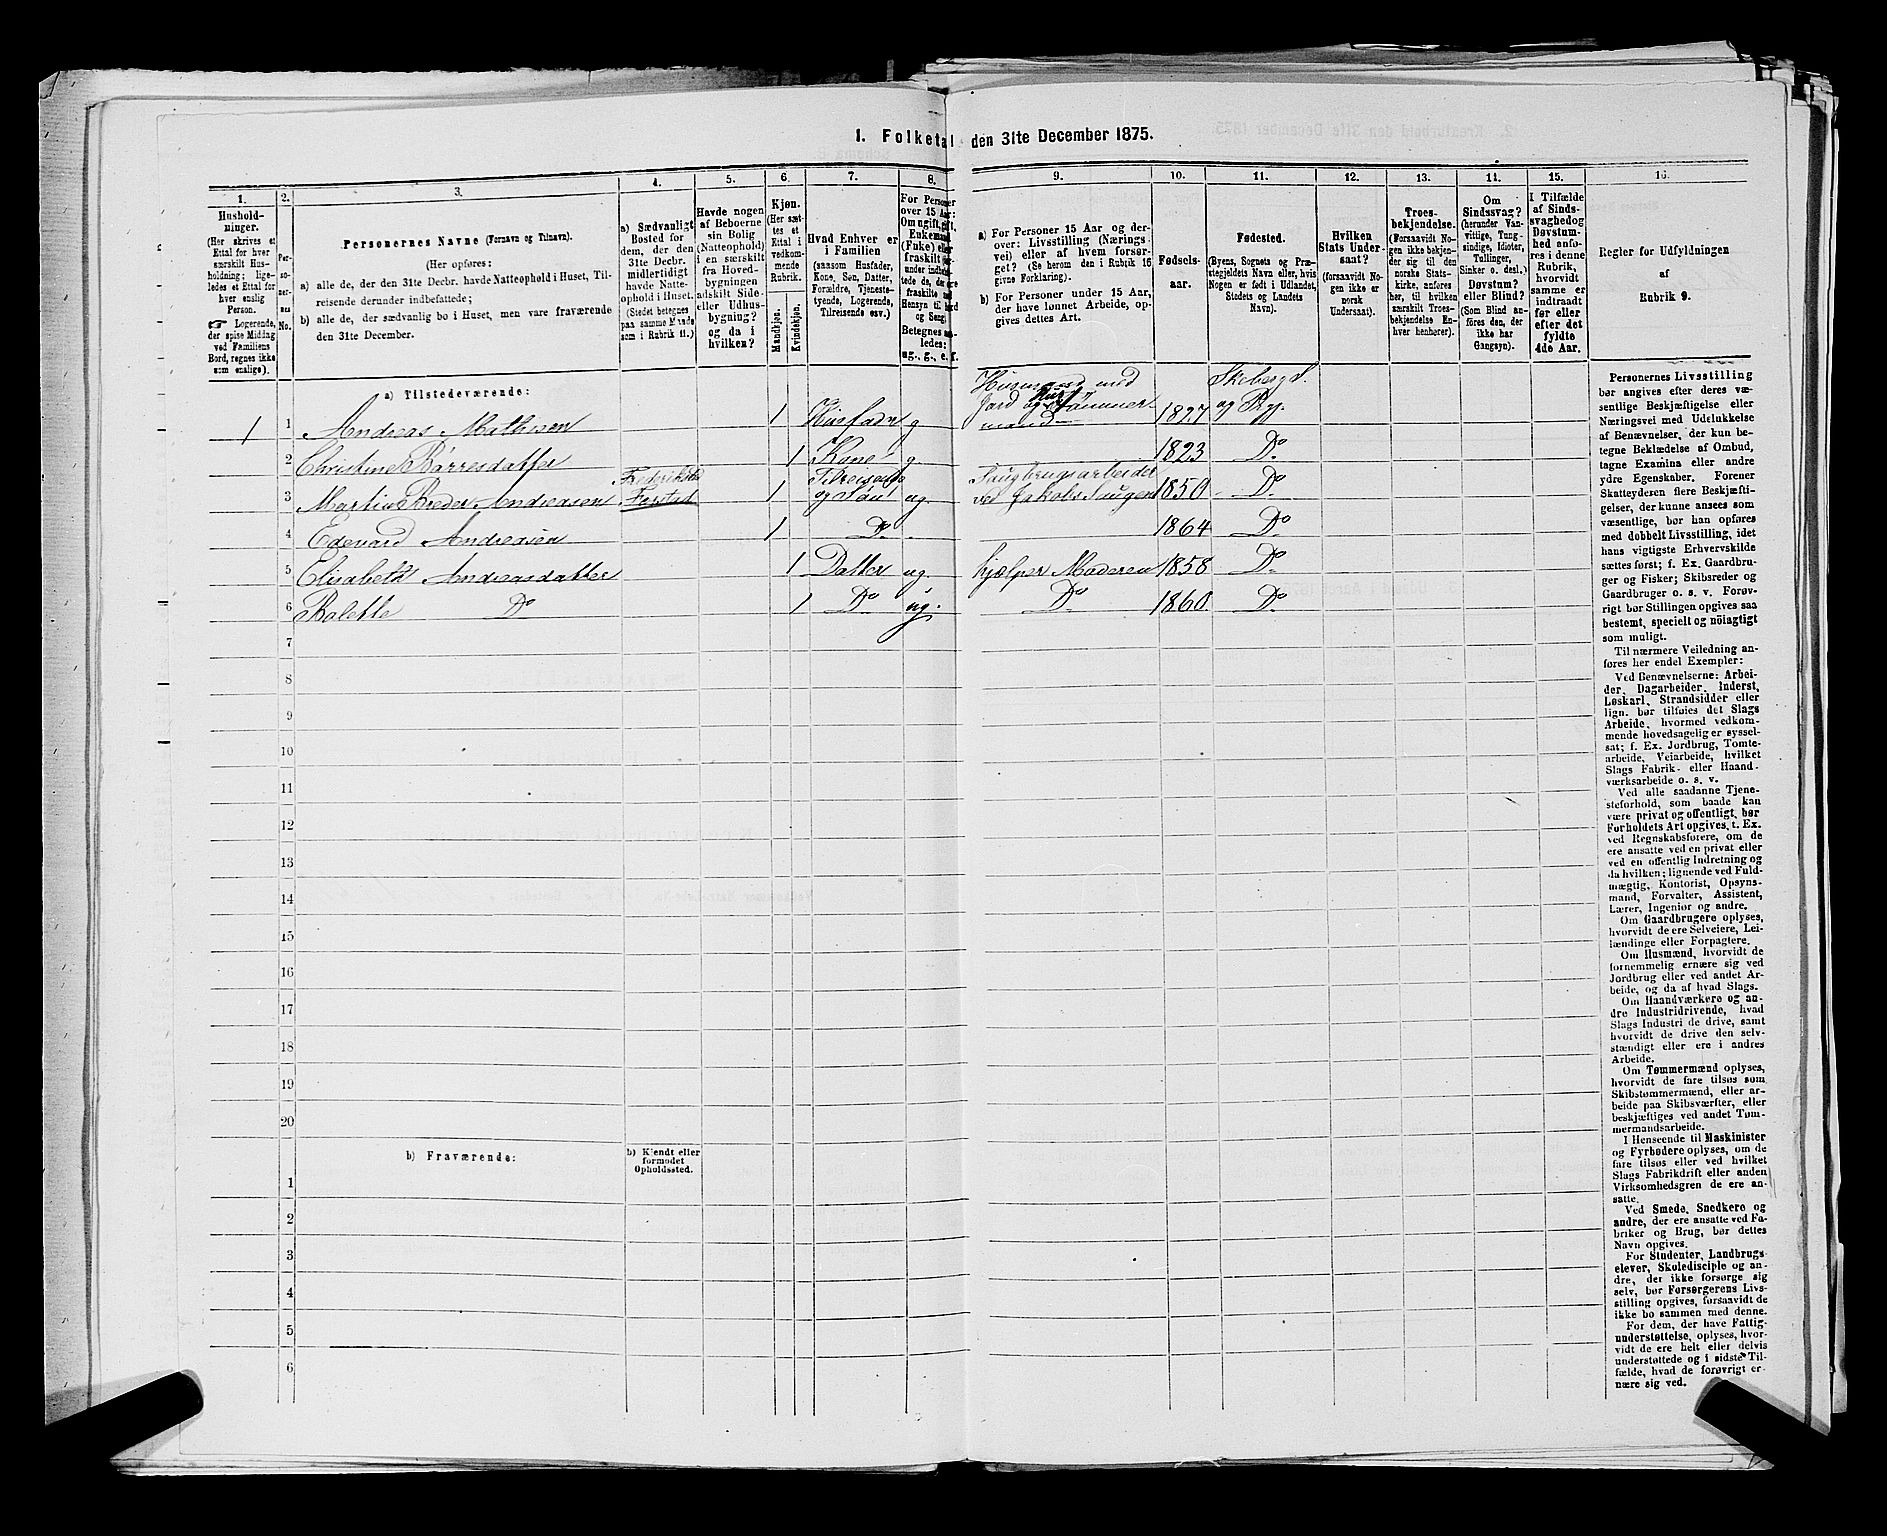 1. Folketal den 31te December 1875.
1. 2. 3. 4. 5. 6. 7. 8. 9. 10. 11. 12. 13. 14. 15. 16.
Hushold-
ninger.
(Her skrives et
Ettal for hver
særskilt Hus-
holdning; lige-
ledes et Ettal for
hver enslig
Person.
☞ Logerende,
der spise Middag
ved Familiens
Bord, regnes ikke
som enslige).
Per-
so-
ner-
nes
No.
Personernes Navne (Fornavn og Tilnavn).
(Her opføres:
a) alle de, der den 31te Decbr. havde Natteophold i Huset, Til-
reisende derunder indbefattede;
b) alle de, der sædvanlig bo i Huset, men vare fraværende
den 31te December.
a) Sædvanligt
Bosted for
dem, der den
31te Decbr.
midlertidigt
havde Natte-
ophold i Huset.
(Stedet betegnes
paa samme Maade
som i Rubrik 11.)
Havde nogen
af Beboerne
sin Bolig
(Natteophold)
i en særskilt
fra Hoved-
bygningen
adskilt Side-
eller Udhus-
bygning?
og da i
hvilken?
Kjøn.
(Her sæt-
tes et
Ettal i
vedkom-
mende
Rubrik.
Mandkjøn.
Kvindekjøn.
Hvad Enhver er
i Familien
(saasom Husfader,
Kone, Søn, Datter,
Forældre, Tjeneste-
tyende, Logerende,
Tilreisende osv.)
For Personer
over 15 Aar:
Om ugift, gift,
Enkemand
(Enke) eller
fraskilt
Betegnes saa-
ledes:
ug., g., e., f.
a) For Personer 15 Aar og der-
over: Livsstilling (Nærings-
vei) eller af hvem forsør-
get? (Se herom den i Rubrik 16
givne Forklaring).
b) For Personer under 15 Aar,
der have lønnet Arbeide, op-
gives dettes Art.
Fødsels-
aar.
Fødested.
(Byens, Sognets og Præ-
stegjeldets Navn eller, hvis
Nogen er født i Udlandet,
Stedets og Landets
Navn).
Hvilken
Stats Under-
saat?
(forsaavidt No-
gen ikke er
norsk
Undersaat).
Troes-
bekjendelse.
(Forsaavidt No-
gen ikke bekjen-
der sig til den
norske Stats-
kirke, anføres
her, til hvilken
særskilt Troes-
bekjendelse En-
hver henhører).
Om
Sindssvag?
(herunder Van-
vittige, Tung-
sindige, Idioter,
Tullinger,
Sinker o. desl.).
Døvstum?
eller Blind?
(Som Blind an-
føres den, der
ikke har
Gangsyn).
I Tilfælde
af Sinds-
svaghed og
Døvstum-
hed anfø-
res i denne
Rubrik,
hvorvidt
samme er
indtraadt
før eller
efter det
fyldte
4de Aar.
Regler for Udfyldningen
af
Rubrik 9.
a) Tilstedeværende:
1 1 Andreas Mathisen 1 Husfader g Husmand med Jord og Tømmer- mand 1827 Skeberg S. og Pgj.
2 Christine Børresdatter 1 Kone g. 1823 Do
3 Martin Breder Andreasen Frederikstad Forstad 1 Tilreisende og Søn ug. Saugbrugsarbeider ved Jakobs Saugen 1850 Do
4 Edevard Andreasen 1 Do 1864 Do
5 Elisabeth Andreasdatter 1 Datter ug. hjælper Moderen 1858 Do
6 Balette Do 1 Do ug. Do 1860 Do
7
8
9
10
11
12
13
14
15
16
17
18
19
20
b) Fraværende:
b) Kjendt eller
formodet
Opholdssted.
1
2
3
4
5
6
Personernes Livsstilling
bør angives efter deres væ-
sentlige Beskjæftigelse eller
Næringsvei med Udelukkelse
af Benævnelser, der kun be-
tegne Beklædelse af Ombud,
tagne Examina eller andre
ydre Egenskaber. Forener
Skatteyderen flere Beskjæfti-
gelser, der kunne ansees som
væsentlige, bør han opføres
med dobbelt Livsstilling, idet
hans vigtigste Erhvervskilde
sættes først; f. Ex. Gaardbru-
ger og Fisker; Skibsreder og
Gaardbruger o. s. v. Forøv-
rigt bør Stillingen opgives saa
bestemt, specielt og nøiagtigt
som muligt.
Til nærmere Veiledning an-
føres her endel Exempler:
Ved Benævnelserne: Arbei-
der, Dagarbeider, Inderst,
Løskarl, Strandsidder eller
lign. bør tilføies det Slags
Arbeide, hvormed vedkom-
mende hovedsagelig er syssel-
sat; f. Ex. Jordbrug, Tomte-
arbeide, Veiarbeide, hvilket
Slags Fabrik- eller Haand-
værksarbeide o. s. v.
Ved alle saadanne Tjene-
steforhold, som baade kan
være privat og offentligt, bør
Forholdets Art opgives, t. Ex.
ved Regnskabsførere, om de
ere ansatte ved en privat eller
ved en offentlig Indretning og
da hvilken; lignende ved Fuld-
mægtig, Kontorist, Opsyns-
mand, Forvalter, Assistent,
Lærer, Ingeniør og andre.
Om Gaardbrugere oplyses,
hvorvidt de ere Selveiere, Lei-
lændinge eller Forpagtere.
Om Husmænd, hvorvidt de
fornemmelig ernære sig ved
Jordbrug eller ved andet Ar-
beide, og da af hvad Slags.
Om Haandværkere og an-
dre Industridrivende, hvad
Slags Industri de drive, samt
hvorvidt de drive den selv-
stændigt eller ere i andres
Arbeide.
Om Tømmermænd oplyses,
hvorvidt de fare tilsøs som
Skibstømmermænd, eller ar-
beide paa Skibsværfter, eller
beskjæftiges ved andet Tøm-
mermandsarbeide.
I Henseende til Maskinister
og Fyrbødere oplyses, om de
fare tilsøs eller ved hvilket
Slags Fabrikdrift eller anden
Virksomhedsgren de ere an-
satte.
Ved Smede, Snedkere og
andre, der ere ansatte ved Fa-
briker og Brug, bør dettes
Navn opgives.
For Studenter, Landbrugs-
elever, Skoledisciple og an-
dre, der ikke forsørge sig
selv, bør Forsørgerens Livs-
stilling opgives, forsaavidt de
ikke bo sammen med denne.
For dem, der have Fattig-
understøttelse, oplyses, hvor-
vidt de ere helt eller delvis
understøttede og i sidste Til-
fælde, hvad de forøvrigt er-
nære sig ved.